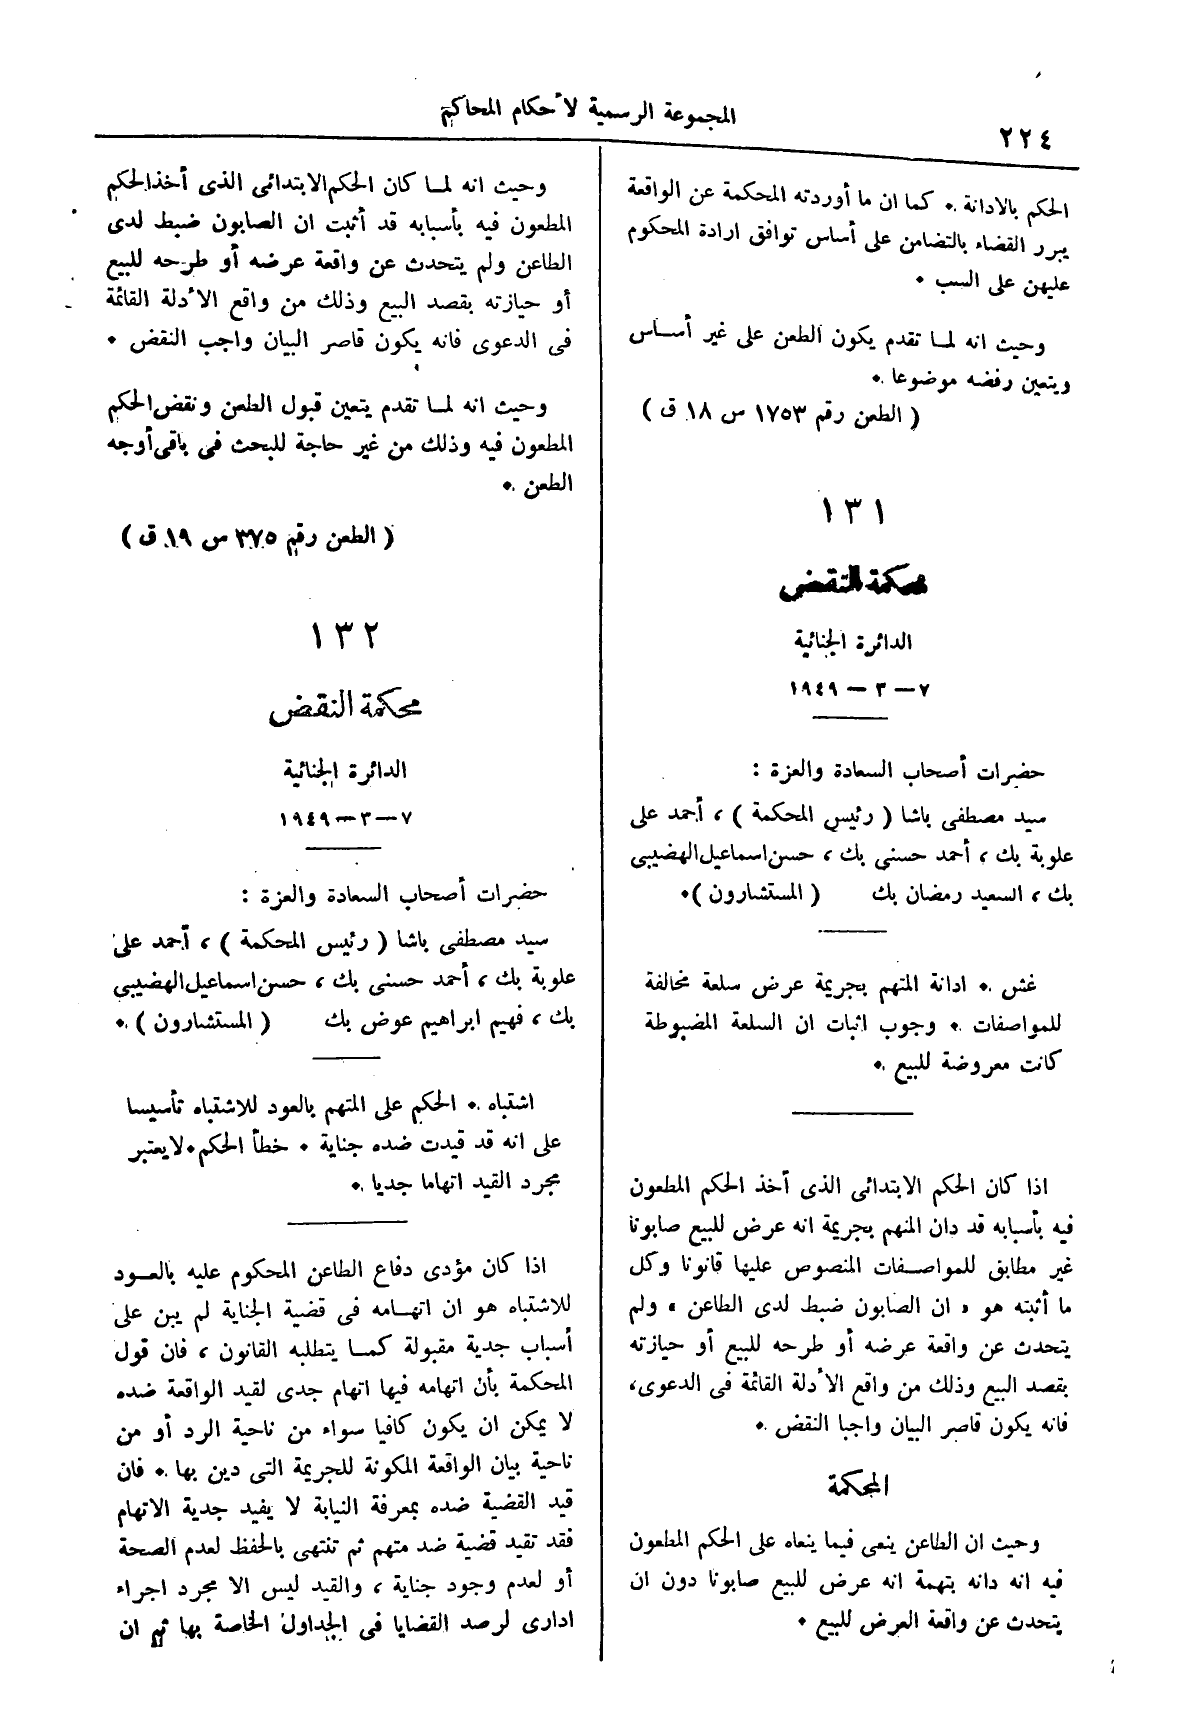 المجموعة الرسمية لأحكام المحاكم
٢٢٤
الحكم بالادانة . كما ان ما أوردته المحكمة عن الواقعة
يبرر القضاء بالتضامن على أساس توافق ارادة المحكوم
عليهن على السب .
وحيث انه لما تقدم يكون الطعن على غير أساس
ويتعين رفضه موضوعا .
( الطعن رقم ١٧٥٣ س ١٨ ق )
١٣١
محكمة النقض
الدائرة الجنائية
٧ - ٣ - ١٩٤٩
حضرات أصحاب السعادة والعزة :
سيد مصطفى باشا ( رئيس المحكمة ) ، أحمد على
علوبة بك ، أحمد حسنى بك ، حسن اسماعيل الهضيبى
بك ، السعيد رمضان بك ( المستشارون ) .
غش . ادانة المتهم بجريمة عرض سلعة مخالفة
للمواصفات . وجوب اثبات ان السلعة المضبوطة
كانت معروضة للبيع .
اذا كان الحكم الابتدائى الذى أخذ الحكم المطعون
فيه بأسبابه قد دان المتهم بجريمة انه عرض للبيع صابونا
غير مطابق للمواصفات المنصوص عليها قانونا وكل
ما أثبته هو « ان الصابون ضبط لدى الطاعن » ولم
يتحدث عن واقعة عرضه أو طرحه للبيع أو حيازته
بقصد البيع وذلك من واقع الأدلة القائمة فى الدعوى،
فانه يكون قاصر البيان واجبا النقض .
المحكمة
وحيث ان الطاعن ينعى فيما ينعاه على الحكم المطعون
فيه انه دانه بتهمة انه عرض للبيع صابونا دون ان
يتحدث عن واقعة العرض للبيع .
وحيث انه لما كان الحكم الابتدائى الذى أخذ الحكم
المطعون فيه بأسبابه قد أثبت ان الصابون ضبط لدى
الطاعن ولم يتحدث عن واقعة عرضه أو طرحه للبيع
أو حيازته بقصد البيع وذلك من واقع الأدلة القائمة
فى الدعوى فانه يكون قاصر البيان واجب النقض .
وحيث انه لما تقدم يتعين قبول الطعن ونقض الحكم
المطعون فيه وذلك من غير حاجة للبحث فى باقى أوجه
الطعن .
( الطعن رقم ٣٧٥ س ١٩ ق )
١٣٢
محكمة النقض
الدائرة الجنائية
٧ - ٣ - ١٩٤٩
حضرات أصحاب السعادة والعزة :
سيد مصطفى باشا ( رئيس المحكمة ) ، أحمد على
علوبة بك ، أحمد حسنى بك ، حسن اسماعيل الهضيبى
بك ، فهيم ابراهيم عوض بك ( المستشارون ) .
اشتباه . الحكم على المتهم بالعود للاشتباه تأسيسا
على انه قد قيدت ضده جناية . خطأ الحكم . لا يعتبر
مجرد القيد اتهاما جديا .
اذا كان مؤدى دفاع الطاعن المحكوم عليه بالعود
للاشتباه هو ان اتهامه فى قضية الجناية لم يبن على
أسباب جدية مقبولة كما يتطلبه القانون ، فان قول
المحكمة بأن اتهامه فيها اتهام جدى لقيد الواقعة ضده
لا يمكن ان يكون كافيا سواء من ناحية الرد أو من
ناحية بيان الواقعة المكونة للجريمة التى دين بها . فان
قيد القضية ضده بمعرفة النيابة لا يفيد جدية الاتهام
فقد تقيد قضية ضد متهم ثم تنتهى بالحفظ لعدم الصحة
أو لعدم وجود جناية ، والقيد ليس الا مجرد اجراء
ادارى لرصد القضايا فى الجداول الخاصة بها ثم ان